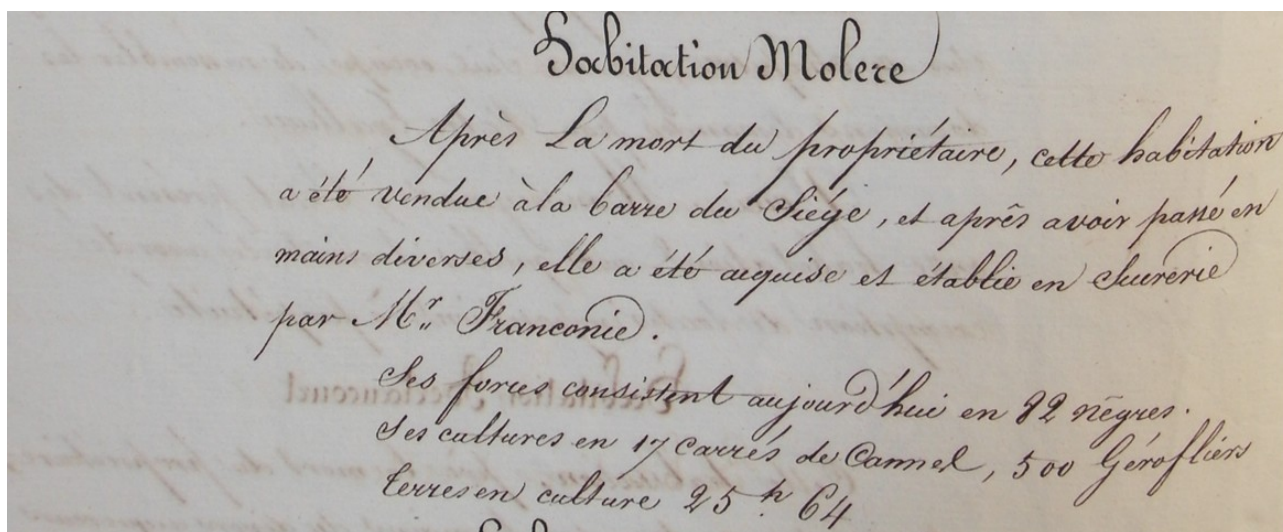 Habitation Molere
Après La mort du propriétaire, cette habitation
a été vendue à la barre du Siége, et après avoir passé en
mains diverses, elle a été acquise et établie en Sucrerie
par Mr. Franconie.
Ses forces consistent aujourd'hui en 82 nègres.
Ses cultures en 17 carrés de Cannes, 500 Gérofliers
Terres en culture 25 h 64